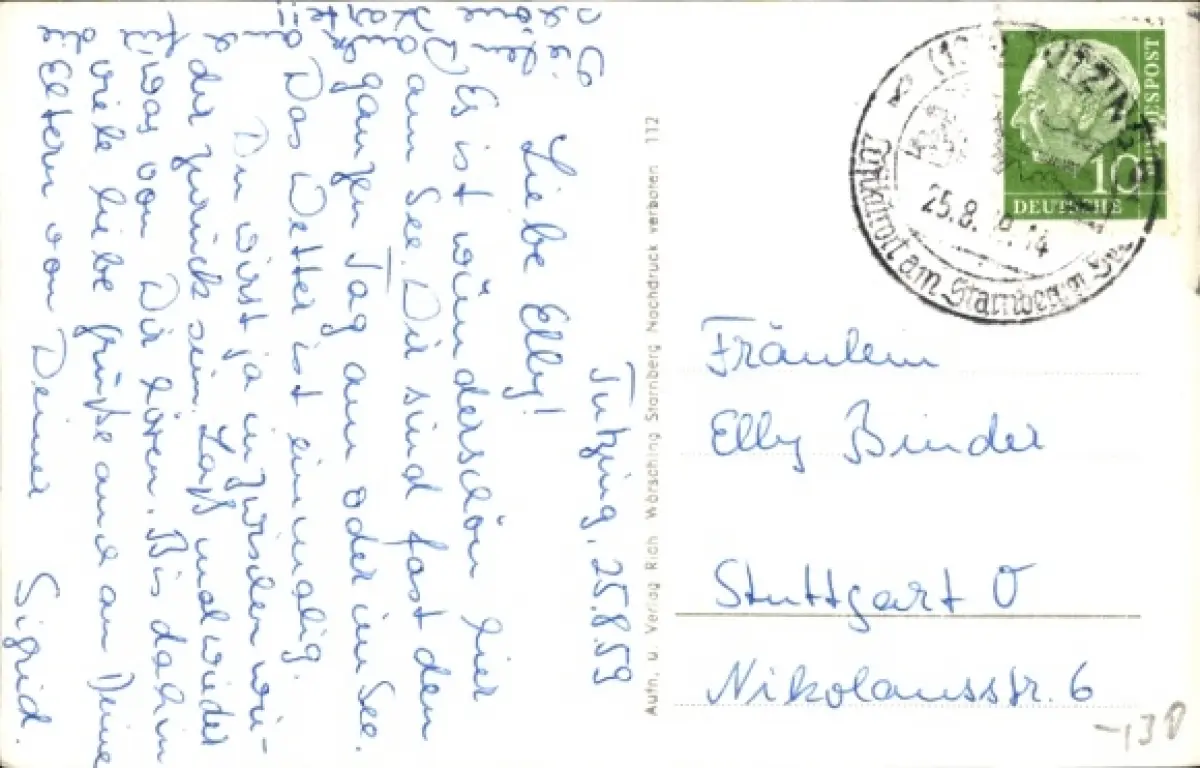 Tutzing, 25.8.59
Liebe Elly!
Es ist wunderschön hier
am See. Wir sind fast den
ganzen Tag am oder im See.
Das Wetter ist einmalig.
Du wirst ja inzwischen wie-
der zurück sein. Laß mal wieder
was von Dir hören. Bis dahin
viele liebe Grüße auch an Deine
Eltern von Deiner Sigrid.
für
die
Karte!!
Aufn. u. Verlag Rich Wörsching Starnberg Nachdruck verboten 112
TUTZING
25.8.
am Starnberger See
10
DEUTSCHE
BUNDESPOST
Fräulein
Elly Binder
Stuttgart O
Nikolausstr. 6